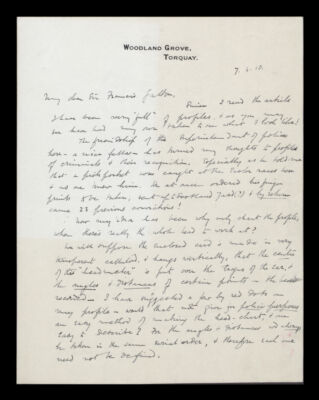 WOODLAND GROVE,
TORQUAY.
7. 4. 10.
My dear Sir Francis Galton,
Since I read the article
I have been very full of profiles, & as you may
see have had my own taken to see what I look like!
The friendship of the Superintendent of police
here – a nice fellow – has turned my thoughts to profiles
of criminals & their recognition. Especially as he told me
that a pickpocket was caught at the races here
& no one knew him. He at once ordered his finger
prints to be taken, sent to (Scotland Yard?) & by return
came 23 previous convictions!
Now my idea has been why only chart the profile,
when there's really the whole head to work at?
Let us suppose the enclosed card is made in very
transparent celluloid, & hangs vertically, that the centre
of this "headmaker" is put over the tragus of the ear, &
the angles & distances of certain points on the head
recorded – I have suggested a few by red dots on
my profile – would that not give for police purposes
an easy method of making the head-chart, & one
easy to describe? For the angles & distances
be taken in the same serial order, & therefore each one
need not be defined.